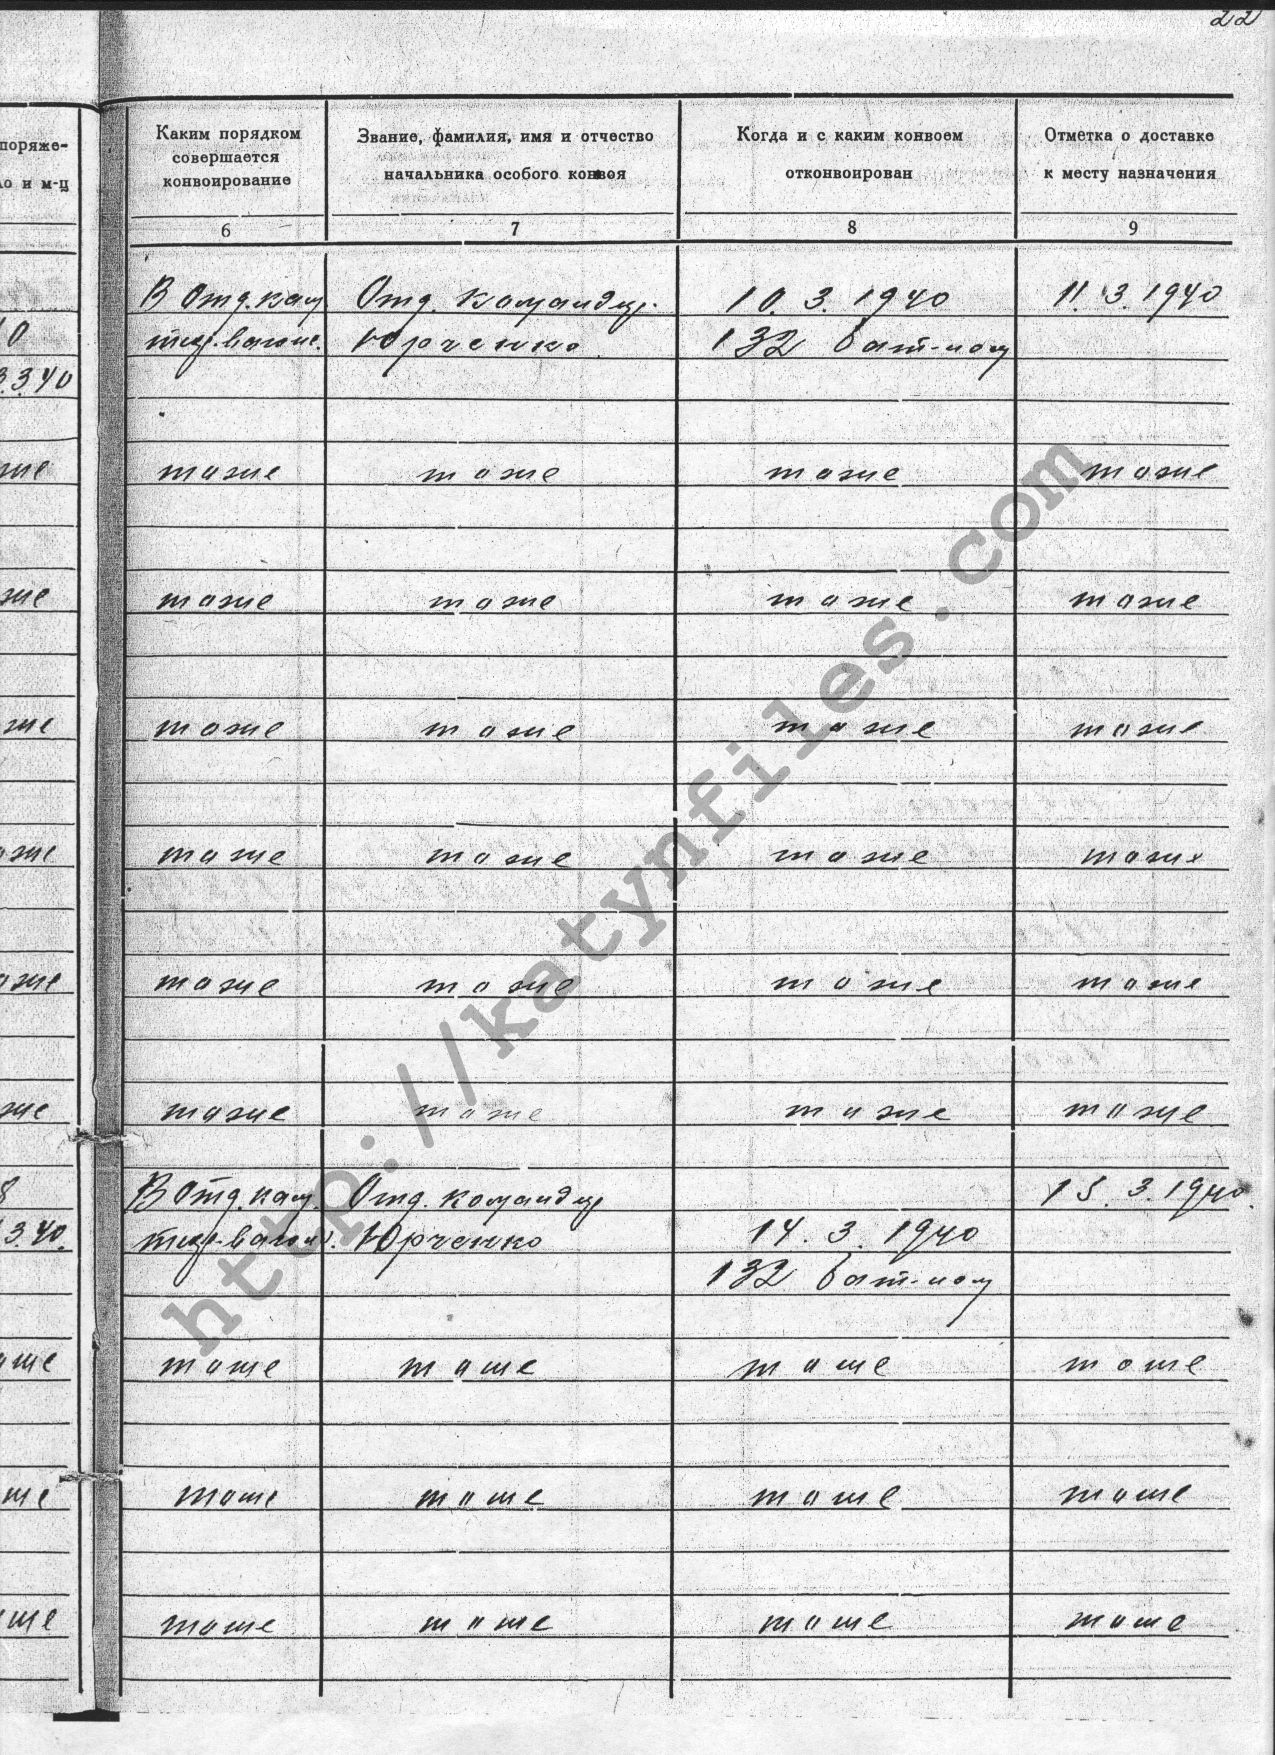 22
поряже-
ло и м-ц
Каким порядком
совершается
конвоирование
Звание, фамилия, имя и отчество
начальника особого конвоя
Когда и с каким конвоем
отконвоирован
Отметка о доставке
к месту назначения
6 7 8 9
В Отд. кам Отд. командир. 10. 3. 1940 11. 3. 1940
0 вагоне. Юрченко 132 бат-ном
3.3 40
же тоже тоже тоже тоже
же тоже тоже тоже тоже
же тоже тоже тоже тоже
оже тоже тоже тоже тоже
оже тоже тоже тоже тоже
же тоже тоже тоже тоже
8 В Отд. кам. Отд. командир 15. 3. 1940.
3. 40. Юрченко 14. 3. 1940
132 бат-ном
оше тоше тоше тоше тоше
ше тоше тоше тоше тоше
ше тоше тоше тоше тоше
http://katynfiles.com